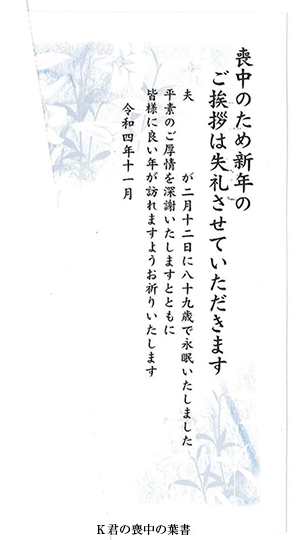 喪中のため新年の
ご挨拶は失礼させていただきます
夫　　　が二月十二日に八十九歳で永眠いたしました
平素のご厚情を深謝いたしますとともに
皆様に良い年が訪れますようお祈りいたします
令和四年十一月
K君の喪中の葉書